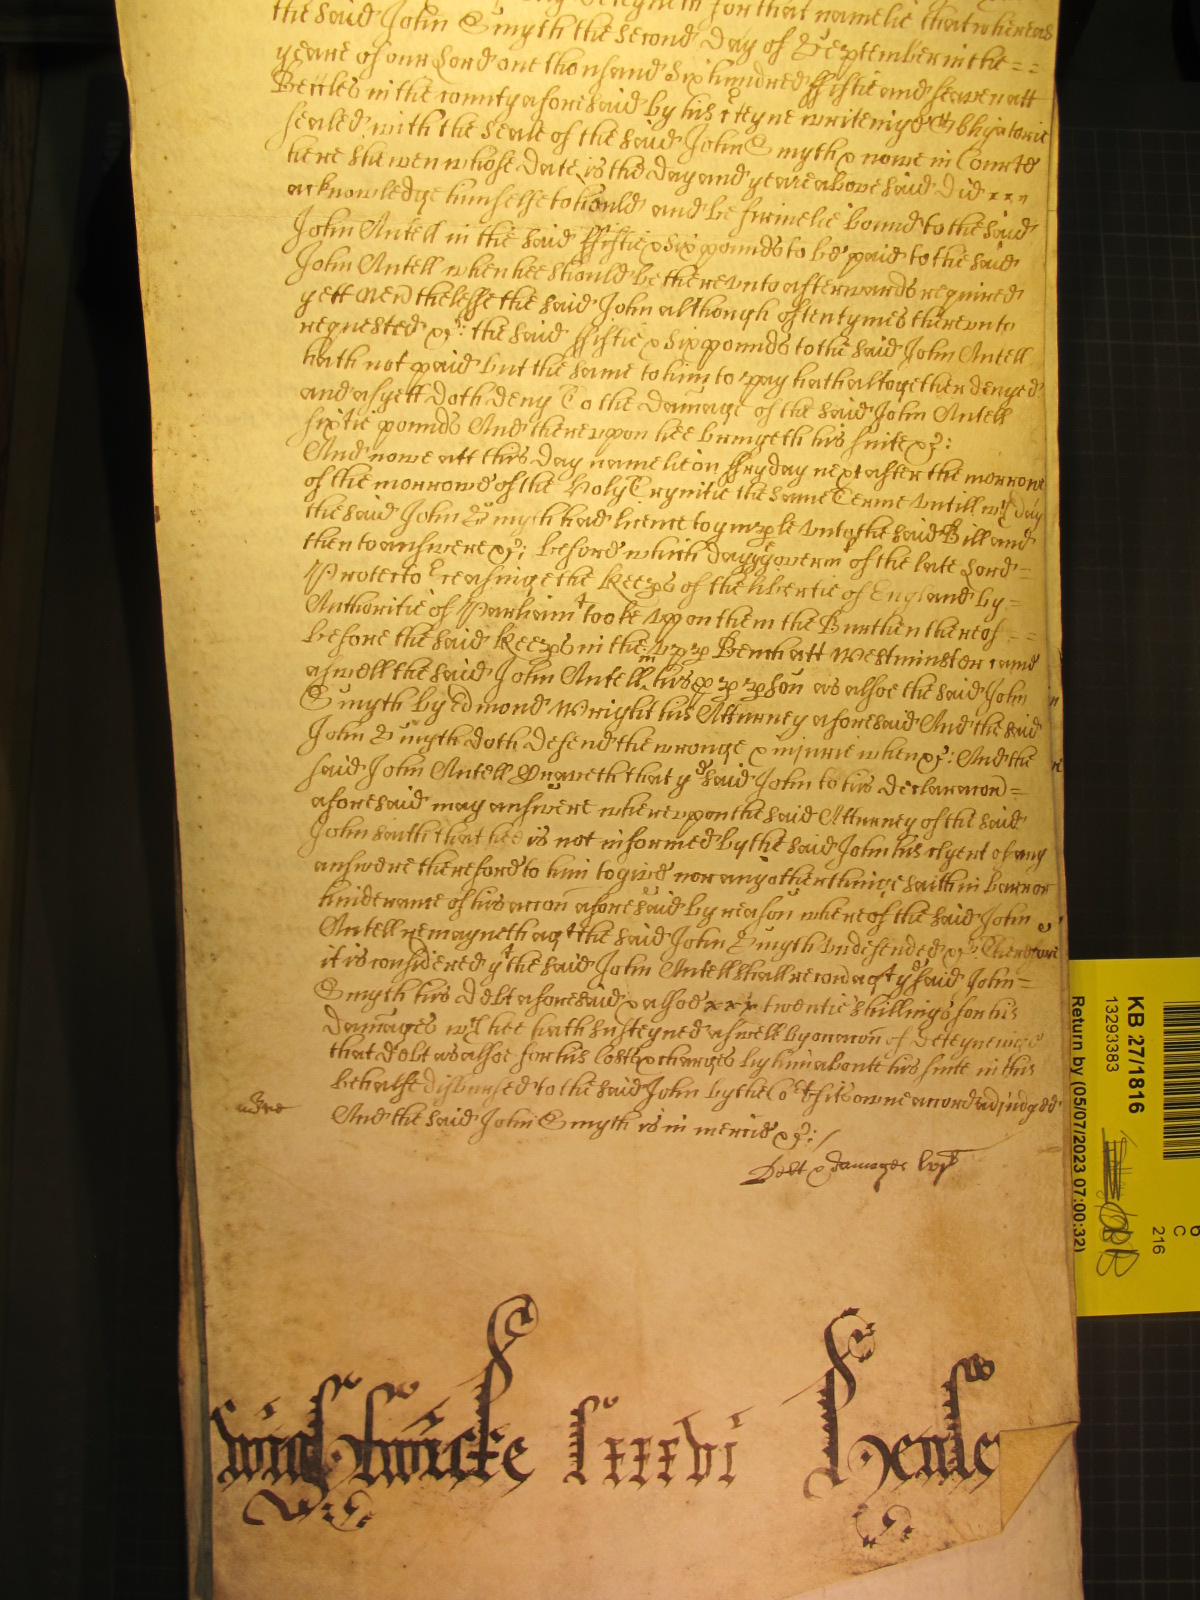 the said John Smyth the second day of September in the ==
yeare of our Lord one thousand six hundred ffiftie and seaven att
Beccles in the county aforesaid by his c'teyne writeinge Obligatorie
sealed with the seale of the said John Smyth & nowe in Courte
here shewen whose date is the day and yeare abovesaid did
acknowledge himselfe to hould and be firmelie bound to the said
John Antell in the said ffiftie & six pounds to be paid to the said
John Antell when hee should be thereunto afterwards required
yett nev'thelesse the said John although oftentymes thereunto
requested &c: the said ffiftie & six pounds to the said John Antell
hath not paid but the same to him to pay hath altogether denyed
and as yett doth deny To the damage of the said John Antell
sixtie pounds And thereupon hee bringeth his suite &c:
And nowe att this day namelie on ffryday next after the morrowe
of the morrowe of the Holy Trynitie the same Terme untill wch day
the said John Smyth had licence to imp'le unto the said Bill and
then to answere &c: before which day ye goverm't of the late Lord =
Protector ceasinge the Keep's of the libertie of England by =
Authoritie of Parliamt tooke upon them the Burthen thereof ==
before the said Keep's in the upp' Bench att Westminster came
aswell the said John Antell in his p'p' p'son as alsoe the said John
Smyth by Edmond Wright his Atturney aforesaid And the said
John Smyth doth defend the wronge & injurie when &c: And the
said John Antell prayeth that ye said John to his declaracon =
aforesaid may answere whereupon the said Atturney of the said
John saith that hee is not informed by the said John his clyent of any
answere therefore to him to give nor any other thinge saith in barr or
hinderance of his accon aforesaid by reason whereof the said John
Antell remayneth agt the said John Smyth undefended &c: Therefore
it is considered yt the said John Antell shall recov agt ye said John =
Smyth his debt aforesaid & alsoe twentie shillings for his
damages wch hee hath susteyned aswell by occacon of deteyneinge
that debt as alsoe for his Costs & charges by him aboute his suite in this
behalfe disbursed to the said John by the Cot. of its owne accord adjudged
And the said John Smyth is in mercie &c:/
Debt & damages lvijli
lxxxvi
KB 27/1816
13293383
Return by (05/07/2023 07:00:32)
6
C
216